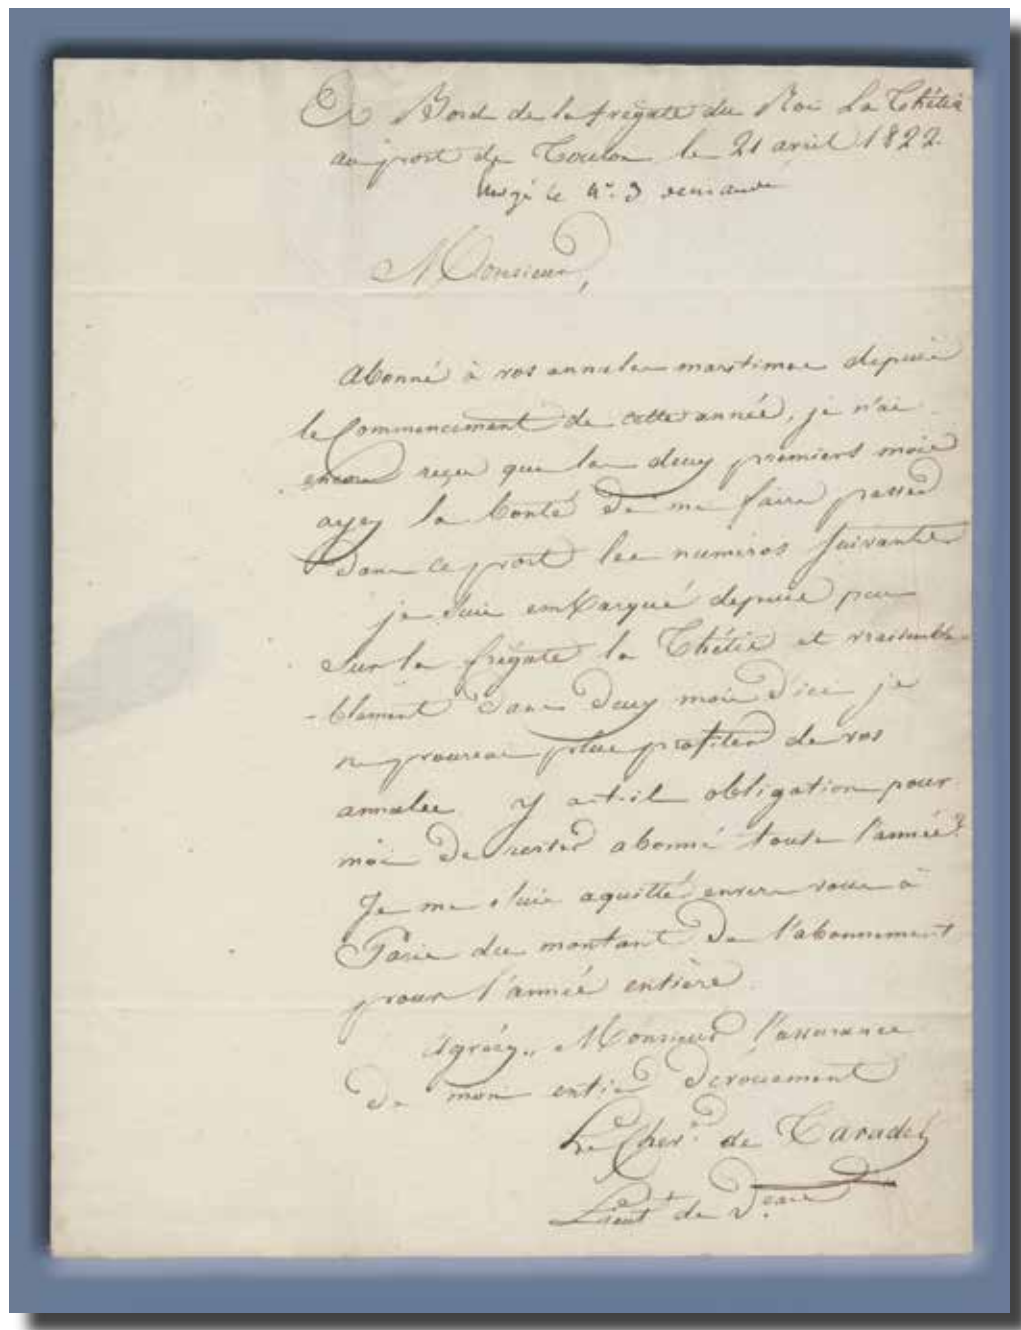 A Bord de la frégate du Roi La Thétis
au port de Toulon le 21 avril 1822.
le n.° 3 demandé
Monsieur,
Abonné à vos annales maritimes depuis
le Commencement de cette année, je n'ai
encore reçu que les deux premiers mois
ayez la bonté de me faire passer
dans ce port les numéros suivants
je suis embarqué depuis peu
Sur la frégate la Thétis et vraisembla-
-blement dans deux mois d'ici je
ne pourrai plus profiter de vos
annales Y a-t-il obligation pour
moi de rester abonné toute l'année?
Je me suis aquitté envers vous à
Paris du montant de l'abonnement
pour l'année entière
Agréez, Monsieur l'assurance
de mon entier dévouement
Le Cher. de Taradel
Lieut. de V.eau